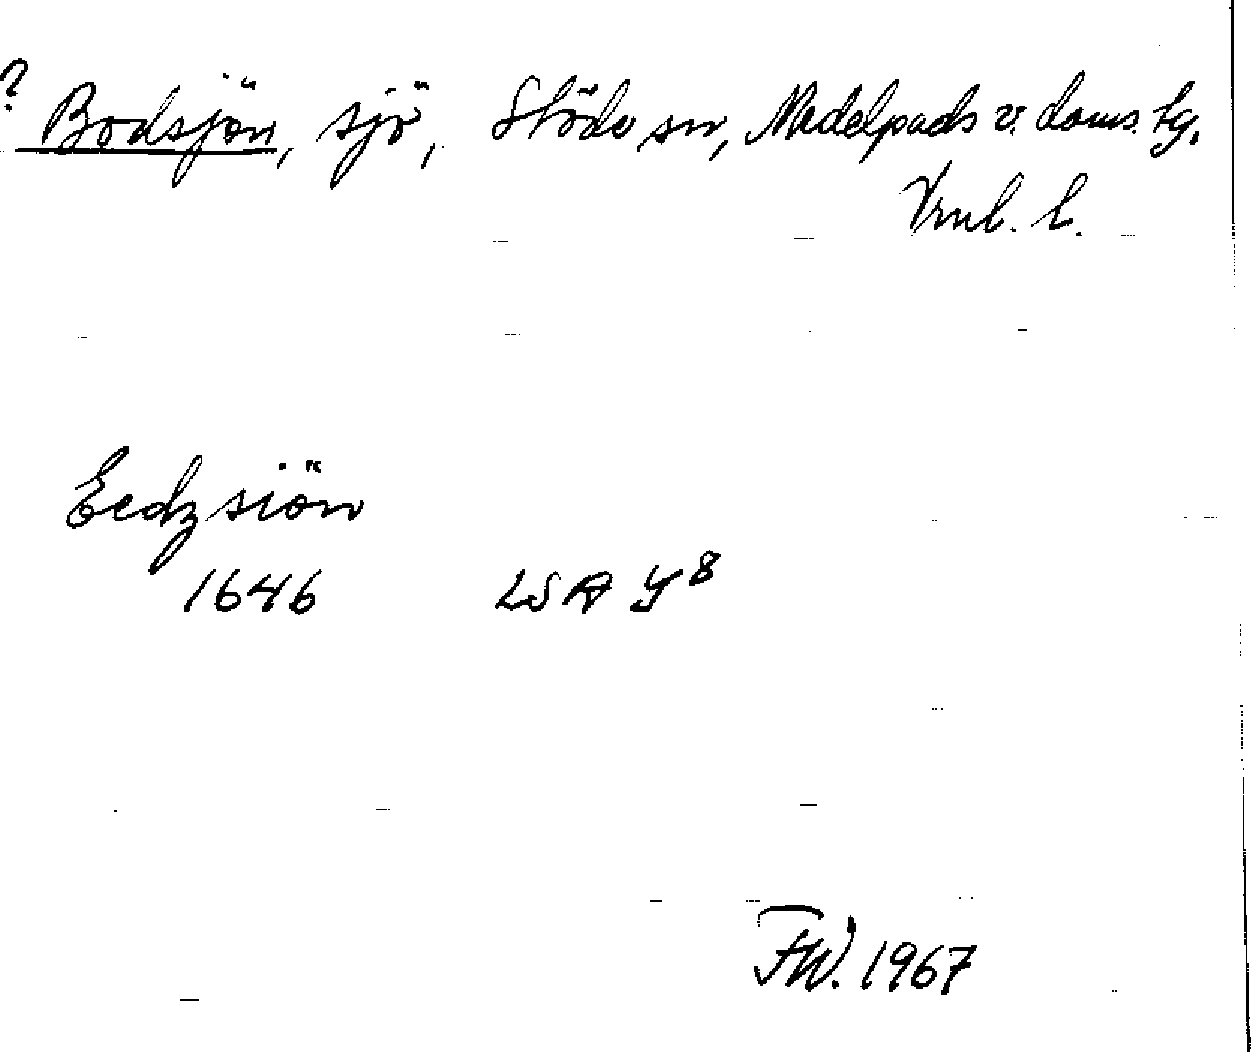 ? Bodsjön, sjö, Stöde sn, Medelpads v. doms. tg.
Vrnl. l.
Eedzsiön
1646 LSA Y8
FW. 1967